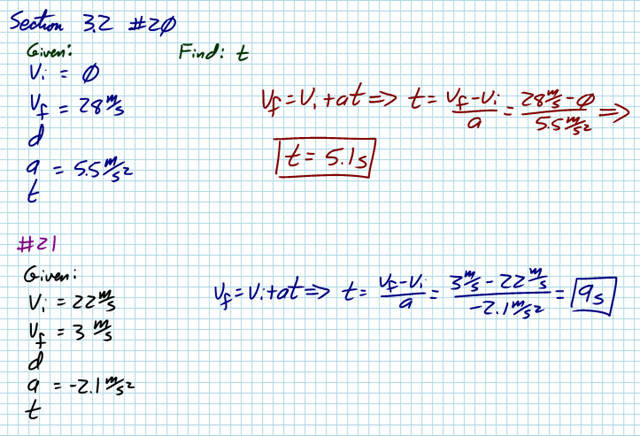 Section 3.2 #20
Given: Find: t
Vi = 0
Vf = 28 m/s
d
a = 5.5 m/s²
t
Vf = Vi + at => t = (Vf - Vi)/a = (28 m/s - 0)/(5.5 m/s²) =>
t = 5.1s
#21
Given:
Vi = 22 m/s
Vf = 3 m/s
d
a = -2.1 m/s²
t
Vf = Vi + at => t = (Vf - Vi)/a = (3 m/s - 22 m/s)/(-2.1 m/s²) = 9s